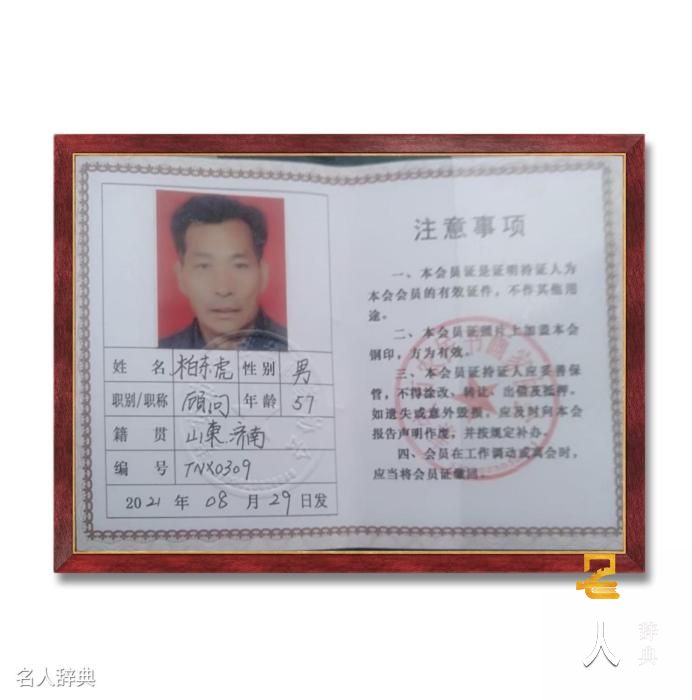 姓 名 柏东虎 性别 男
职别/职称 顾问 年龄 57
籍 贯 山東.济南
编 号 TNX0309
2021 年 08 月 29 日发
注意事项
一、本会员证是证明持证人为
本会会员的有效证件，不作其他用
途。
二、本会员证照片上加盖本会
钢印，方为有效。
三、本会员证持证人应妥善保
管，不得涂改、转让、出借及抵押。
如遗失或意外毁损，应及时向本会
报告声明作废，并按规定补办。
四、会员在工作调动或离会时，
应当将会员证缴回。
名
人
辞典
名人辞典